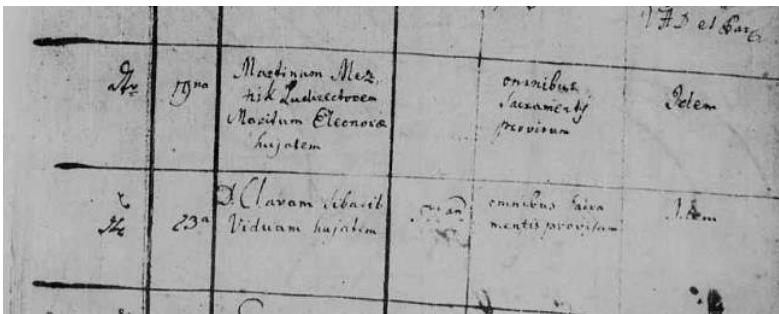 19na
Martinum Mez
nik Ludirectorem
Maritum Eleonoræ
hujatem
omnibus
Sacramentis
provisum
Idem
23a
D. Claram
Viduam hujatem
omnibus Sacra
mentis provisam
Idem